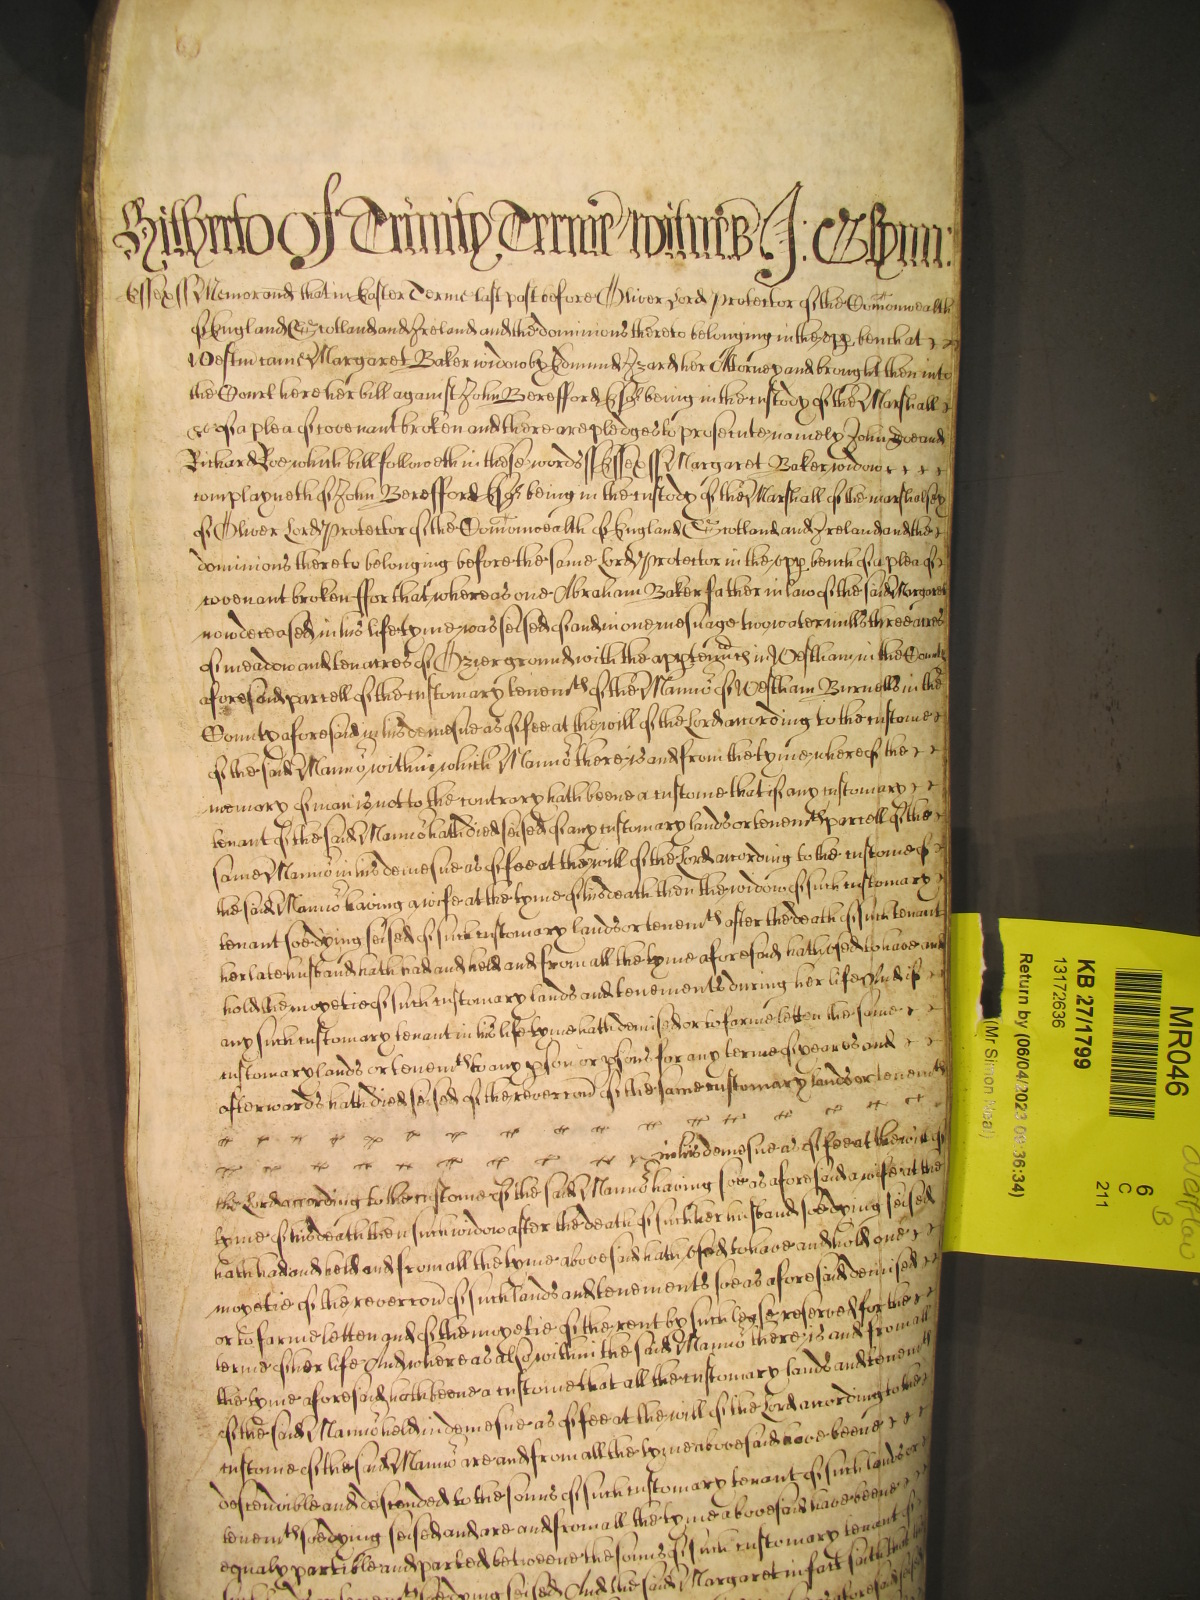 Hitherto of Trinity Terme witnes J: Glynn:
Essex ss Memorand that in Easter Terme last past before Oliver Lord Protector of the Comonwealth
of England Scotland and Ireland and the dominions thereto belonging in the upp bench at
Westm came Margaret Baker widow by Edmund Izard her Attorney and brought then into
the Court here her bill against John Berefford Esqr being in the custody of the Marshall
&c of a plea of covenant broken and there are pledges to prosecute namely John Doe and
Richard Roe which bill followeth in these words ss Essex ss Margaret Baker widow
complayneth of John Berefford Esqr being in the custody of the Marshall of the marshalsey
of Oliver Lord Protector of the Comonwealth of England Scotland and Ireland and the
dominions thereto belonging before the same Lord Protector in the upp bench of a plea of
covenant broken ffor that whereas one Abraham Baker father in law of the said Margaret
now deceased in his life tyme was seised of and in one mesuage two water mills three acres
of meadow and ten acres of Ozier ground with the appurtennces in Westham in the County
aforesaid parcell of the customary tenemts of the Mannor of Westham Burnells in the
County aforesaid in his demesne as of fee at the will of the Lord according to the custome
of the said Mannor within which Mannor there is and from the tyme whereof the
memory of man is not to the contrary hath beene a custome that if any customary
tenant of the said Mannor hath died seised of any customary lands or tenemts parcell of the
same Mannor in his demesne as of fee at the will of the Lord according to the custome of
the said Mannor having a wife at the tyme of his death then the widow of such customary
tenant soe dying seised of such customary lands or tenemts after the death of such tenant
her late husband hath had and held and from all the tyme aforesaid hath used to have and
hold the moyetie of such customary lands and tenements during her life And if
any such customary tenant in his life tyme hath demised or to farme letten the same
customary lands or tenemts to any pson or psons for any terme of yeares and
afterwards hath died seised of the revercon of the same customary lands or tenemts
in his demesne as of fee at the will of
the Lord according to the custome of the said Mannor having soe as aforesaid a wife at the
tyme of his death then such widow after the death of such her husband soe dying seised
hath had and held and from all the tyme abovesaid hath used to have and hold one
moyetie of the revercon of such lands and tenements soe as aforesaid demised
or to farme letten and of the moyetie of the rent by such lease reserved for the
terme of her life And whereas also within the said Mannor there is and from all
the tyme aforesaid hath beene a custome that all the customary lands and tenemts
of the said Mannor held in demesne as of fee at the will of the Lord according to the
custome of the said Mannor are and from all the tyme abovesaid have beene
descendible and descended to the sonns of such customary tenant of such lands or
tenemts soe dying seised and are and from all the tyme abovesaid have beene
equaly partible and parted betweene the sonns of such customary tenant of
soe dying seised And the said Margaret in fact saith that
MR046
6
C
211
KB 27/1799
13172636
Return by (06/04/2023 09:36:34)
(Mr Simon Neal)
overflow
B